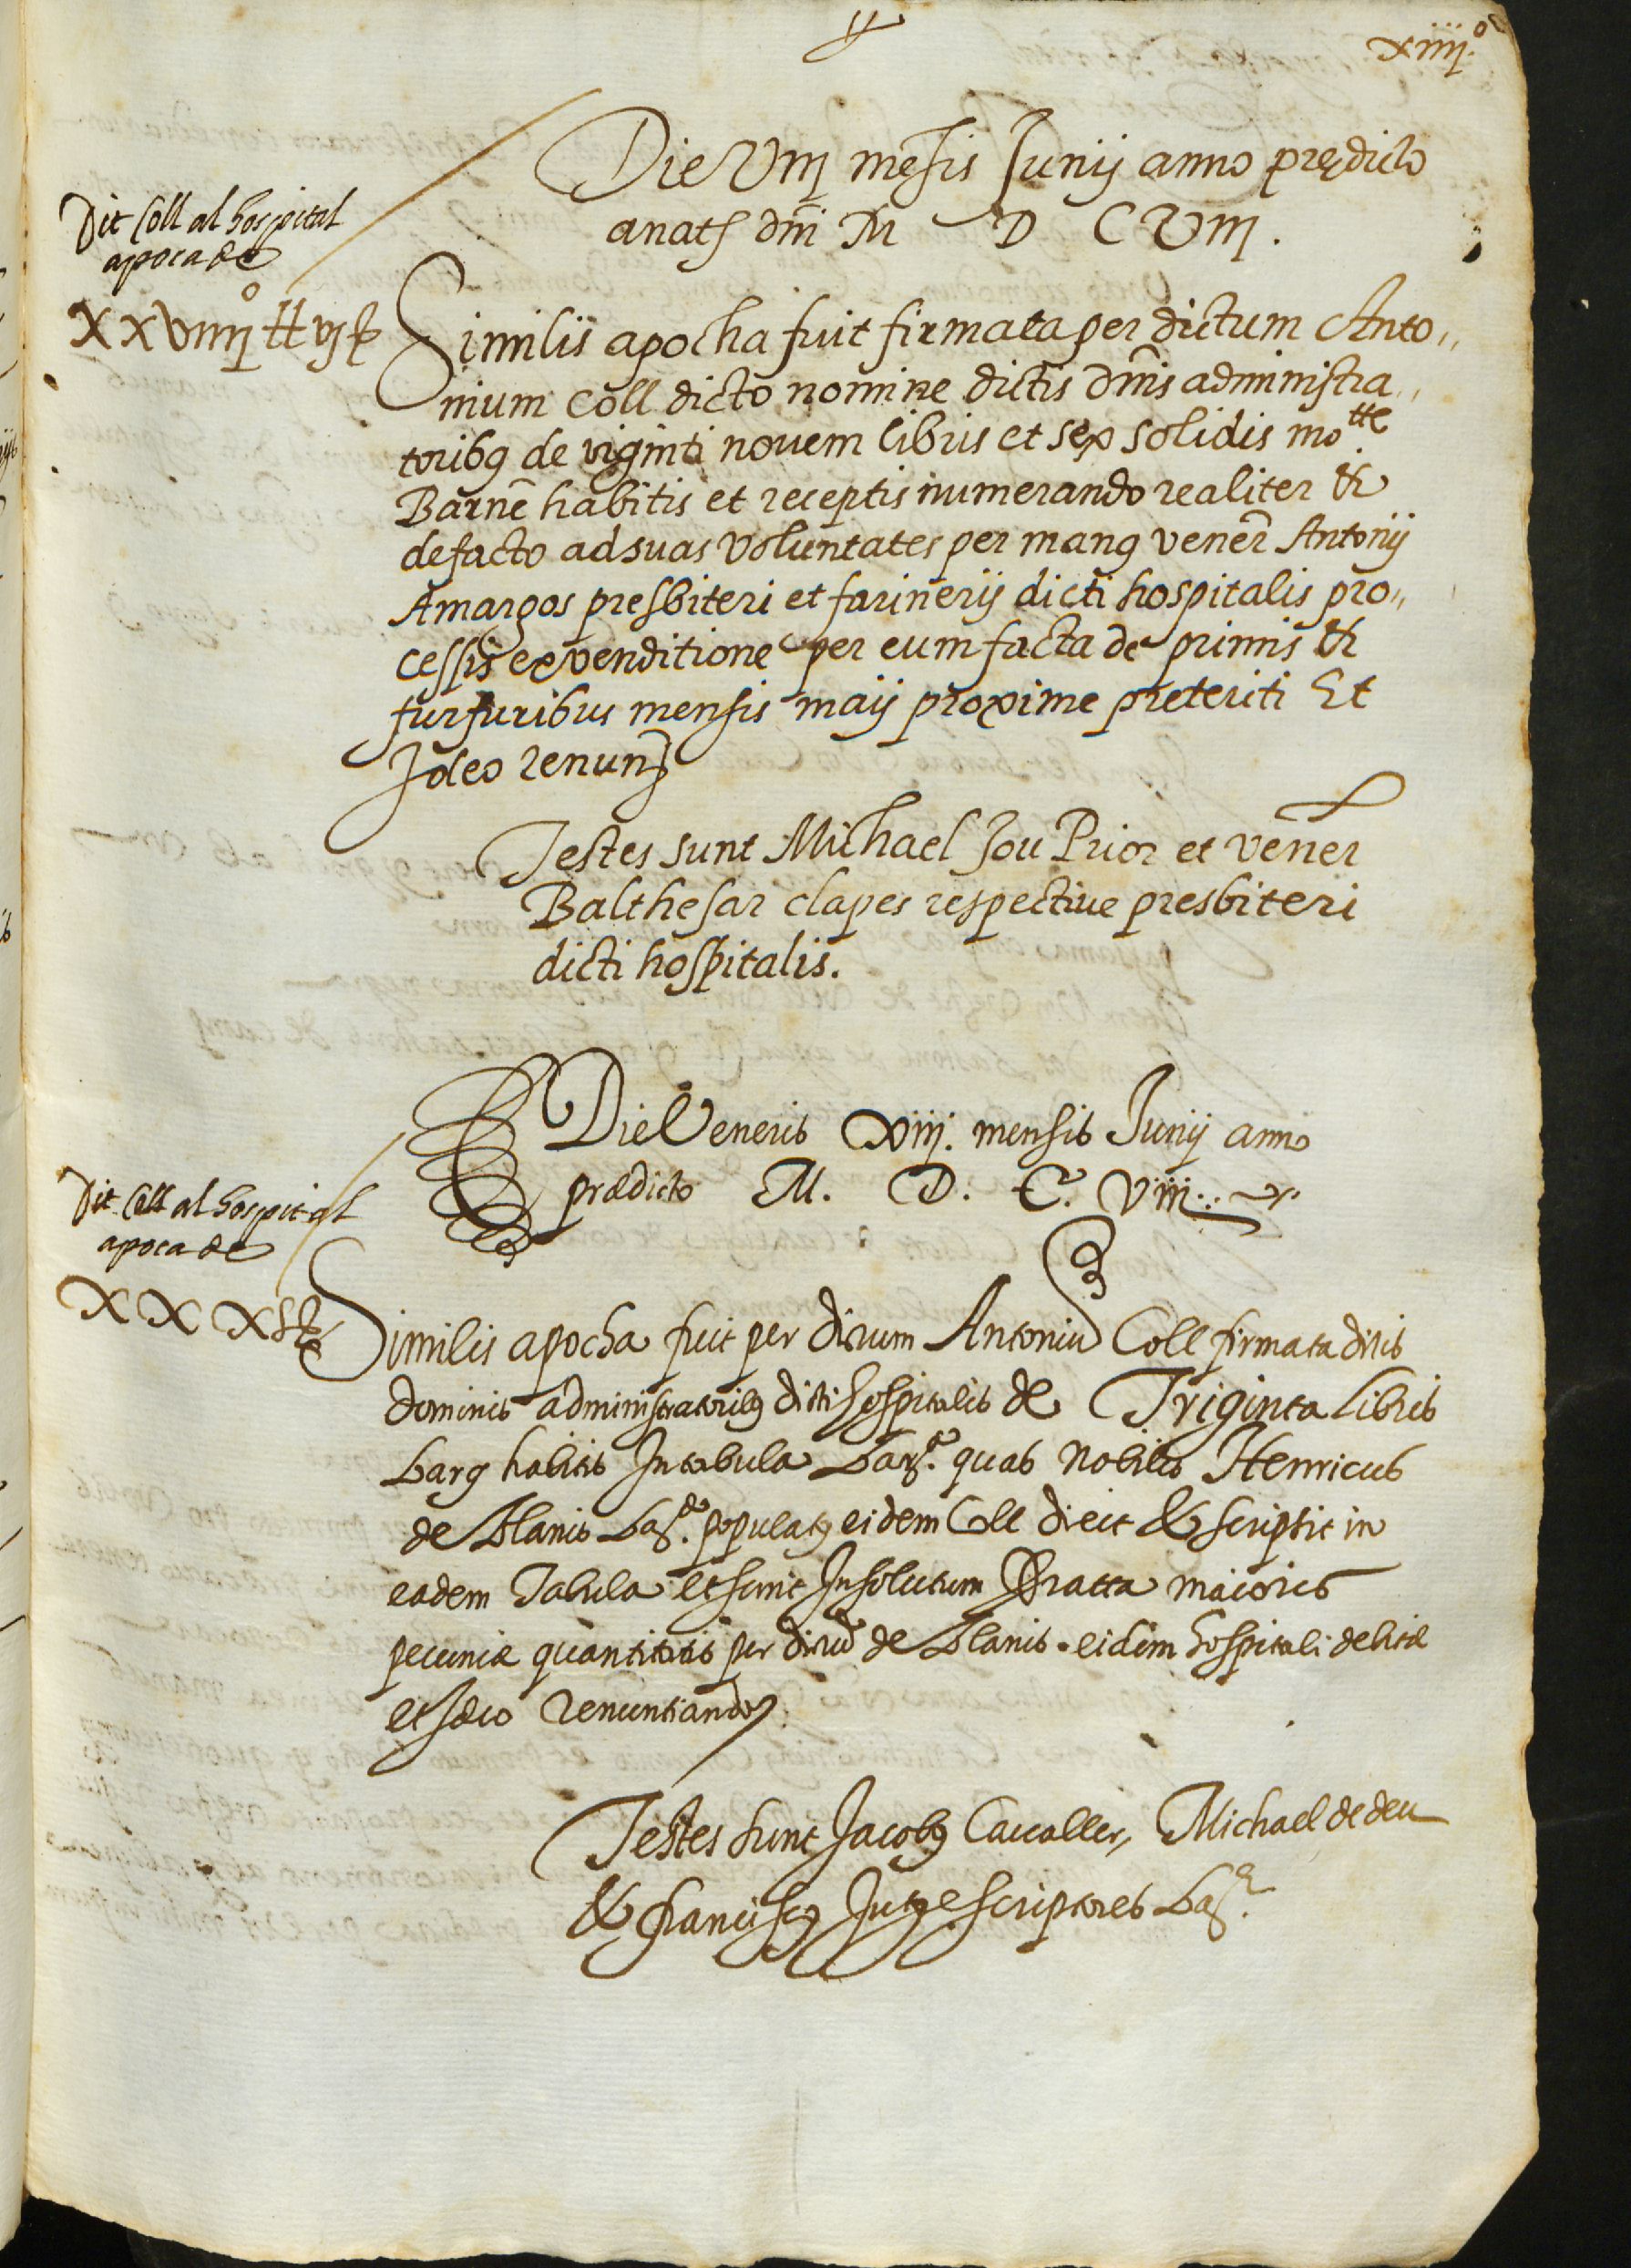 xiiij.º
Die Viij mēsis Junij anno prędicto
a natȷ dñi M D C Viij.
Dit Coll al hospital
apoca de
XXViiijº ħ vj ß
Similis apocha fuit firmata per dictum Anto„
nium Coll dicto nomine dictis dñis administra„
toribꝯ de viginti novem libris et sex solidis mo.tte
Barnē habitis et receptis numerando realiter &
de facto ad suas voluntates per manꝯ venēr Antonij
Amargos presbiteri et farinerij dicti hospitalis pro„
cessis ex venditione per eum facta de primis &
furfuribus mensis maij proxime preteriti Et
Ideo renunȷ
Testes sunt Michael Jou Prior et vēner
Balthesar clapes respective presbiteri
dicti hospitalis.
Die Veneris Xiij. mensis Junij anno
prædicto M. D. C. Viij.
Dit Coll al hospital
apoca de
XXX ħ
Similis apocha fuit per dictum Antoniū Coll firmata dictis
dominis administratoribꝯ dicti hospitalis de Triginta libris
Barꝯ habitis In tabula Barꝯ. quas Nobilis Henricus
de Blanis Baꝯ. populatꝯ eidem Coll dixit & scripsit in
eadem Tabula et sunt In solutum pro ratta maioris
pecuniæ quantitatis per dictū de Blanis eidem hospitali debitæ
et Ideo renuntiandoȷ.
Testes sunt Jacobꝯ Cavaller, Michael de deu
& franciscꝯ Jutge scriptores Baꝯ.